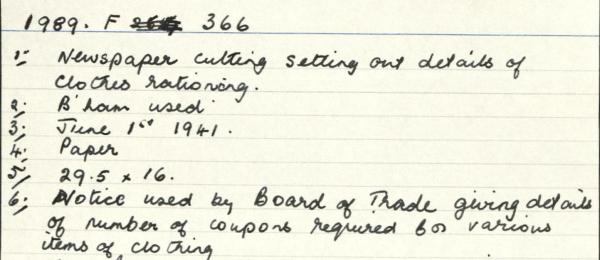 1989. F 366
1: Newspaper cutting setting out details of
clothes rationing.
2: B'ham used
3: June 1st 1941.
4: Paper
5: 29.5 x 16.
6: Notice used by Board of Trade giving details
of number of coupons required for various
items of clothing